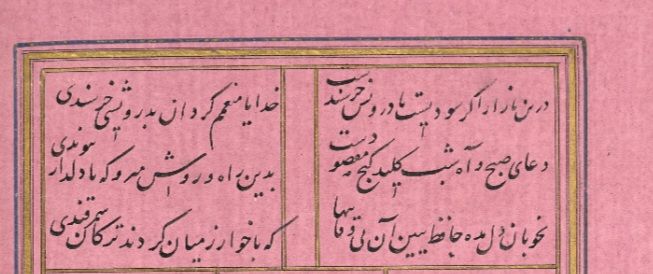 درین بازار اگر سودیست با درویش خرسندست خدایا منعمم گردان بدرویشی خرسندی
دعای صبح و آه شب کلید گنج مقصودست بدین راه و روش میرو که با دلدار پیوندی
بخوبان دل مده حافظ ببین آن بی وفاییها که با خوارزمیان کردند ترکان سمرقندی